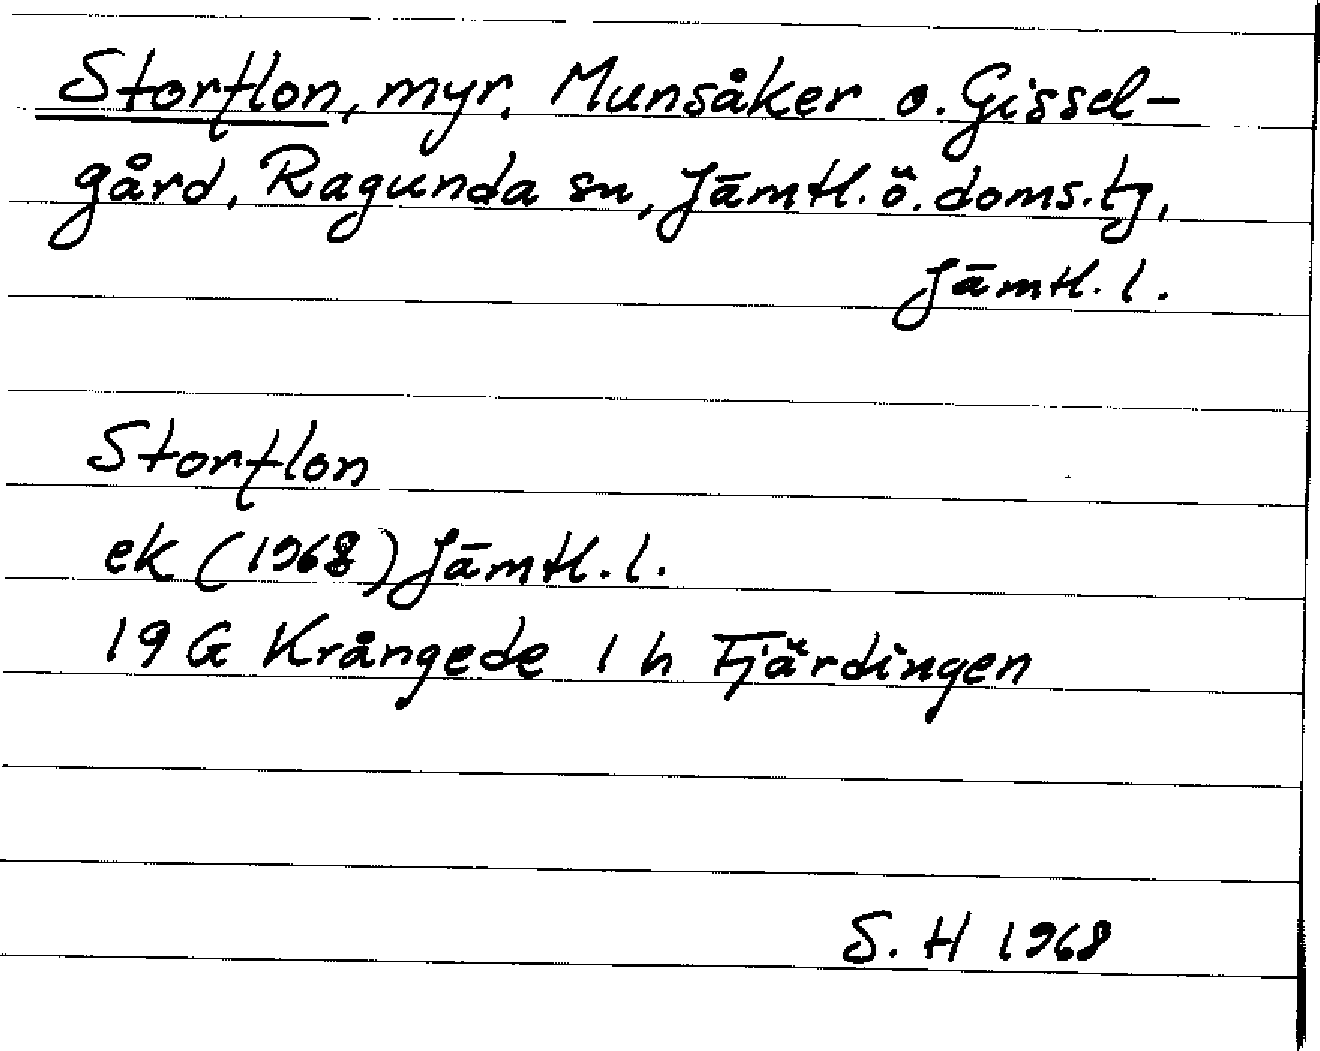 Storflon, myr. Munsåker o. Gissel-
gård, Ragunda sn, Jämtl. ö. doms. tg,
Jämtl. l.
Storflon
ek (1968) Jämtl. l.
19 G Krångede 1 h Fjärdingen
S. H 1968